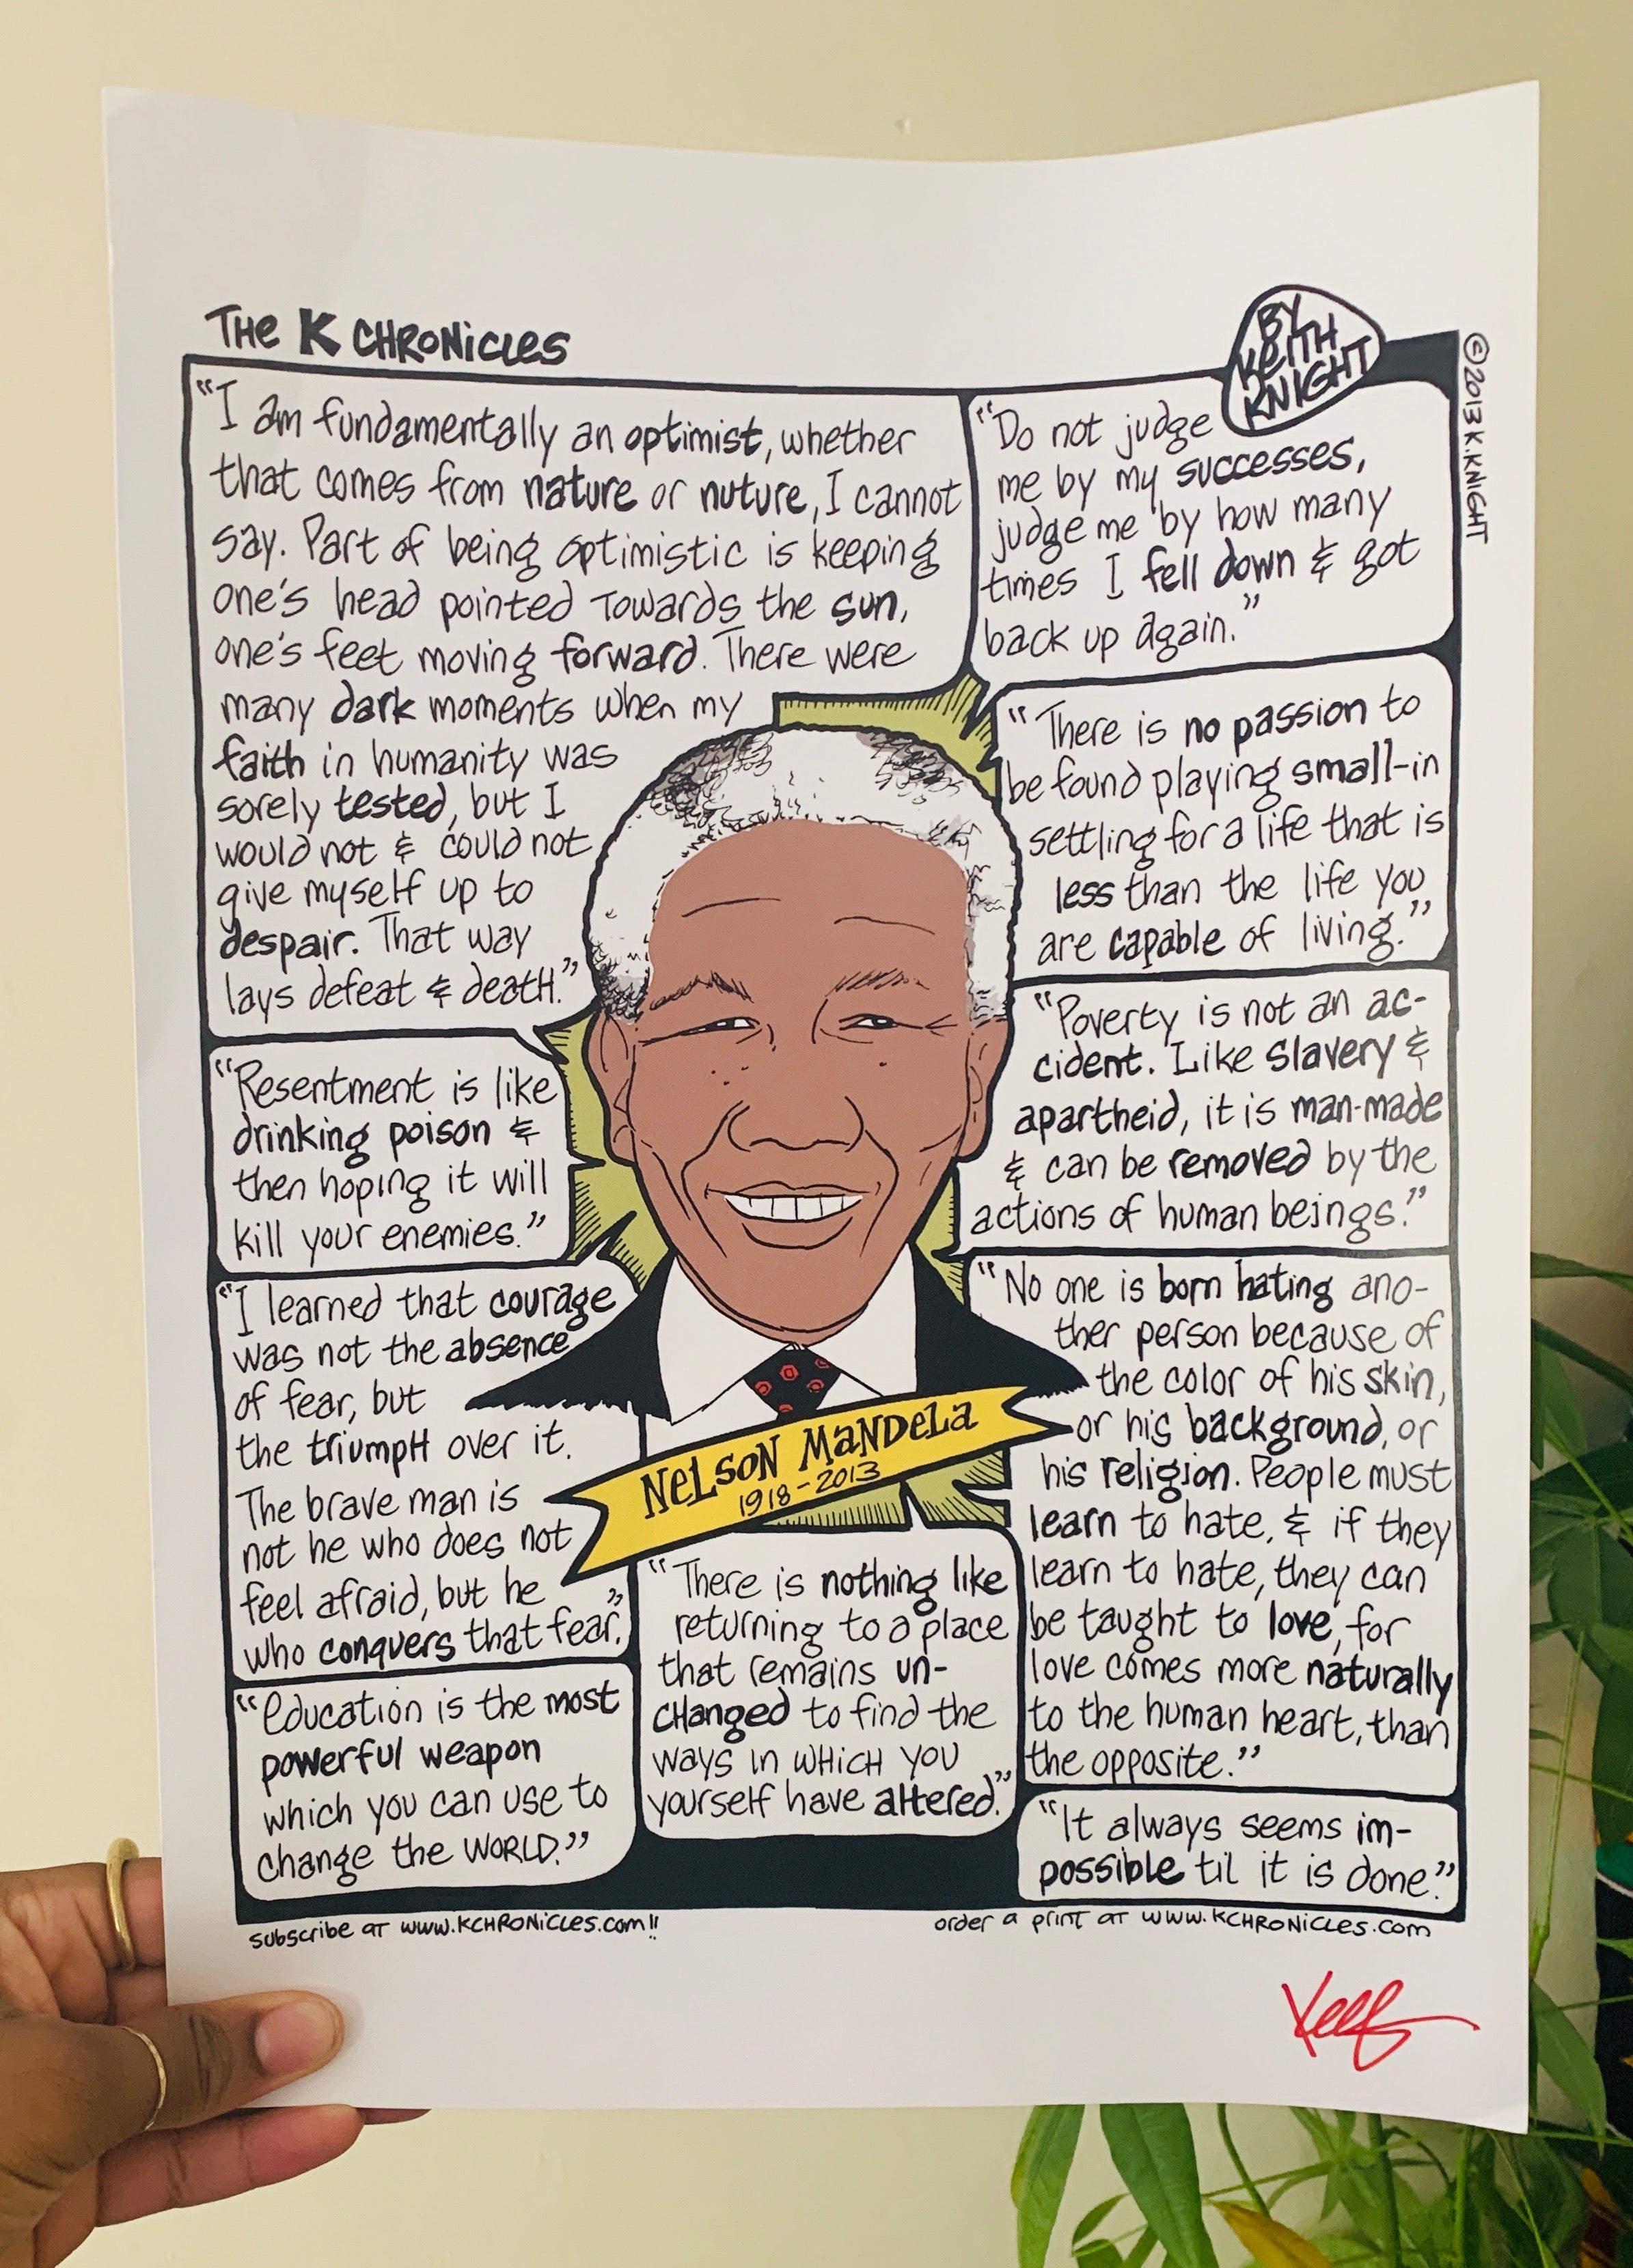 THE K CHRONICLES
BY
KEITH
KNIGHT
©2013 K.KNIGHT
"I am fundamentally an optimist, whether
that comes from nature or nuture, I cannot
say. Part of being optimistic is keeping
one's head pointed towards the sun,
one's feet moving forward. There were
many dark moments when my
faith in humanity was
sorely tested, but I
would not & could not
give myself up to
despair. That way
lays defeat & death."
"Do not judge
me by my successes,
judge me by how many
times I fell down & got
back up again."
"There is no passion to
be found playing small-in
settling for a life that is
less than the life you
are capable of living."
"Resentment is like
drinking poison &
then hoping it will
kill your enemies."
"Poverty is not an ac-
cident. Like slavery &
apartheid, it is man-made
& can be removed by the
actions of human beings."
"I learned that courage
was not the absence
of fear, but
the triumph over it.
The brave man is
not he who does not
feel afraid, but he
who conquers that fear."
"No one is born hating ano-
ther person because of
the color of his skin,
or his background, or
his religion. People must
learn to hate, & if they
learn to hate, they can
be taught to love, for
love comes more naturally
to the human heart, than
the opposite."
NELSON MANDELA
1918-2013
"Education is the most
powerful weapon
which you can use to
change the WORLD."
"There is nothing like
returning to a place
that remains un-
changed to find the
ways in which you
yourself have altered."
"It always seems im-
possible til it is done."
subscribe at www.KCHRONICLES.com!!
order a print at www.KCHRONICLES.com